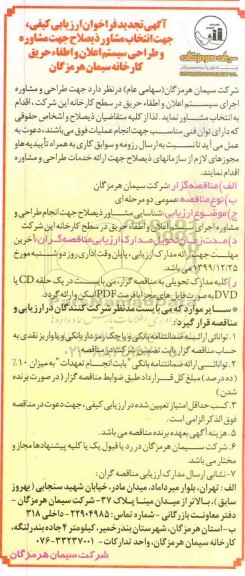 سیمان هرمزگان
آگهی تجدید فراخوان ارزیابی کیفی،
جهت انتخاب مشاور ذیصلاح جهت مشاوره
و طراحی سیستم اعلان و اطفاء حریق
کارخانه سیمان هرمزگان
شرکت سیمان هرمزگان (سهامی عام) در نظر دارد جهت طراحی و مشاوره
اجرای سیستم اعلان و اطفاء حریق در سطح کارخانه این شرکت، اقدام
به انتخاب مشاور نماید. لذا از کلیه متقاضیان ذیصلاح و اشخاص حقوقی
که دارای توان فنی مناسب جهت انجام عملیات فوق می‌باشند، دعوت به
عمل می‌آید تا نسبت به ارسال رزومه و سوابق کاری به همراه تأییدیه‌ها و
مجوزهای لازم از سازمانهای ذیصلاح جهت ارائه خدمات طراحی و مشاوره
اقدام نمایند.
الف) مناقصه‌گزار: شرکت سیمان هرمزگان
ب) نوع مناقصه: عمومی دو مرحله‌ای
ج) موضوع ارزیابی: شناسایی مشاور ذیصلاح جهت انجام طراحی و
مشاوره اجرای سیستم اعلان و اطفاء حریق در سطح کارخانه این شرکت
د) مدت زمان تحویل مدارک ارزیابی مناقصه‌گران: آخرین
مهلت جهت ارائه مدارک ارزیابی، پایان وقت اداری روز دوشنبه مورخ
۱۳۹۹/۱۲/۲۵ می‌باشد.
ر) کلیه مدارک تحویلی به مناقصه گزار، می بایست در یک حلقه CD یا
DVD به صورت فایل‌های مجزا با فرمت PDF اسکن و ارائه گردد.
سایر مواردی که می‌بایست مدنظر شرکت کنندگان در ارزیابی و
مناقصه قرار گیرد:
۱. توانایی ارائه ضمانتنامه بانکی و یا چک رمزدار بانکی و یا واریز نقدی به
حساب مناقصه گزار بابت تضمین شرکت در مناقصه.
۲. توانایی ارائه ضمانتنامه بانکی "بابت انجام تعهدات" به میزان ۱۰٪
(ده درصد) مبلغ کل قرارداد طبق ضوابط مناقصه گزار (در صورت برنده
شدن)
۳. کسب حداقل امتیاز تعیین شده در ارزیابی کیفی، جهت دعوت در مناقصه
فوق الذکر الزامی است.
۵. هزینه آگهی بعهده برنده مناقصه می باشد.
۶. شرکت سیمان هرمزگان در رد یا قبول یک یا کلیه پیشنهادها مجاز و
مختار می باشد.
۷- نشانی ارسال مدارک ارزیابی مناقصه گران:
الف: تهران، بلوار میرداماد، میدان مادر، خیابان شهید سنجابی (بهروز
سابق)، بالاتر از میدان مینا پلاک ۳۷- شرکت سیمان هرمزگان -
دفتر معاونت بازرگانی - شماره تماس: ۲۲۹۰۴۹۸۵ - داخلی ۳۱۸
ب- استان هرمزگان، شهرستان بندرخمیر، کیلومتر ۴ جاده بندرلنگه،
کارخانه سیمان هرمزگان، واحد تدارکات - ۳۳۲۳۷۰۰۱-۰۷۶
شرکت سیمان هرمزگان